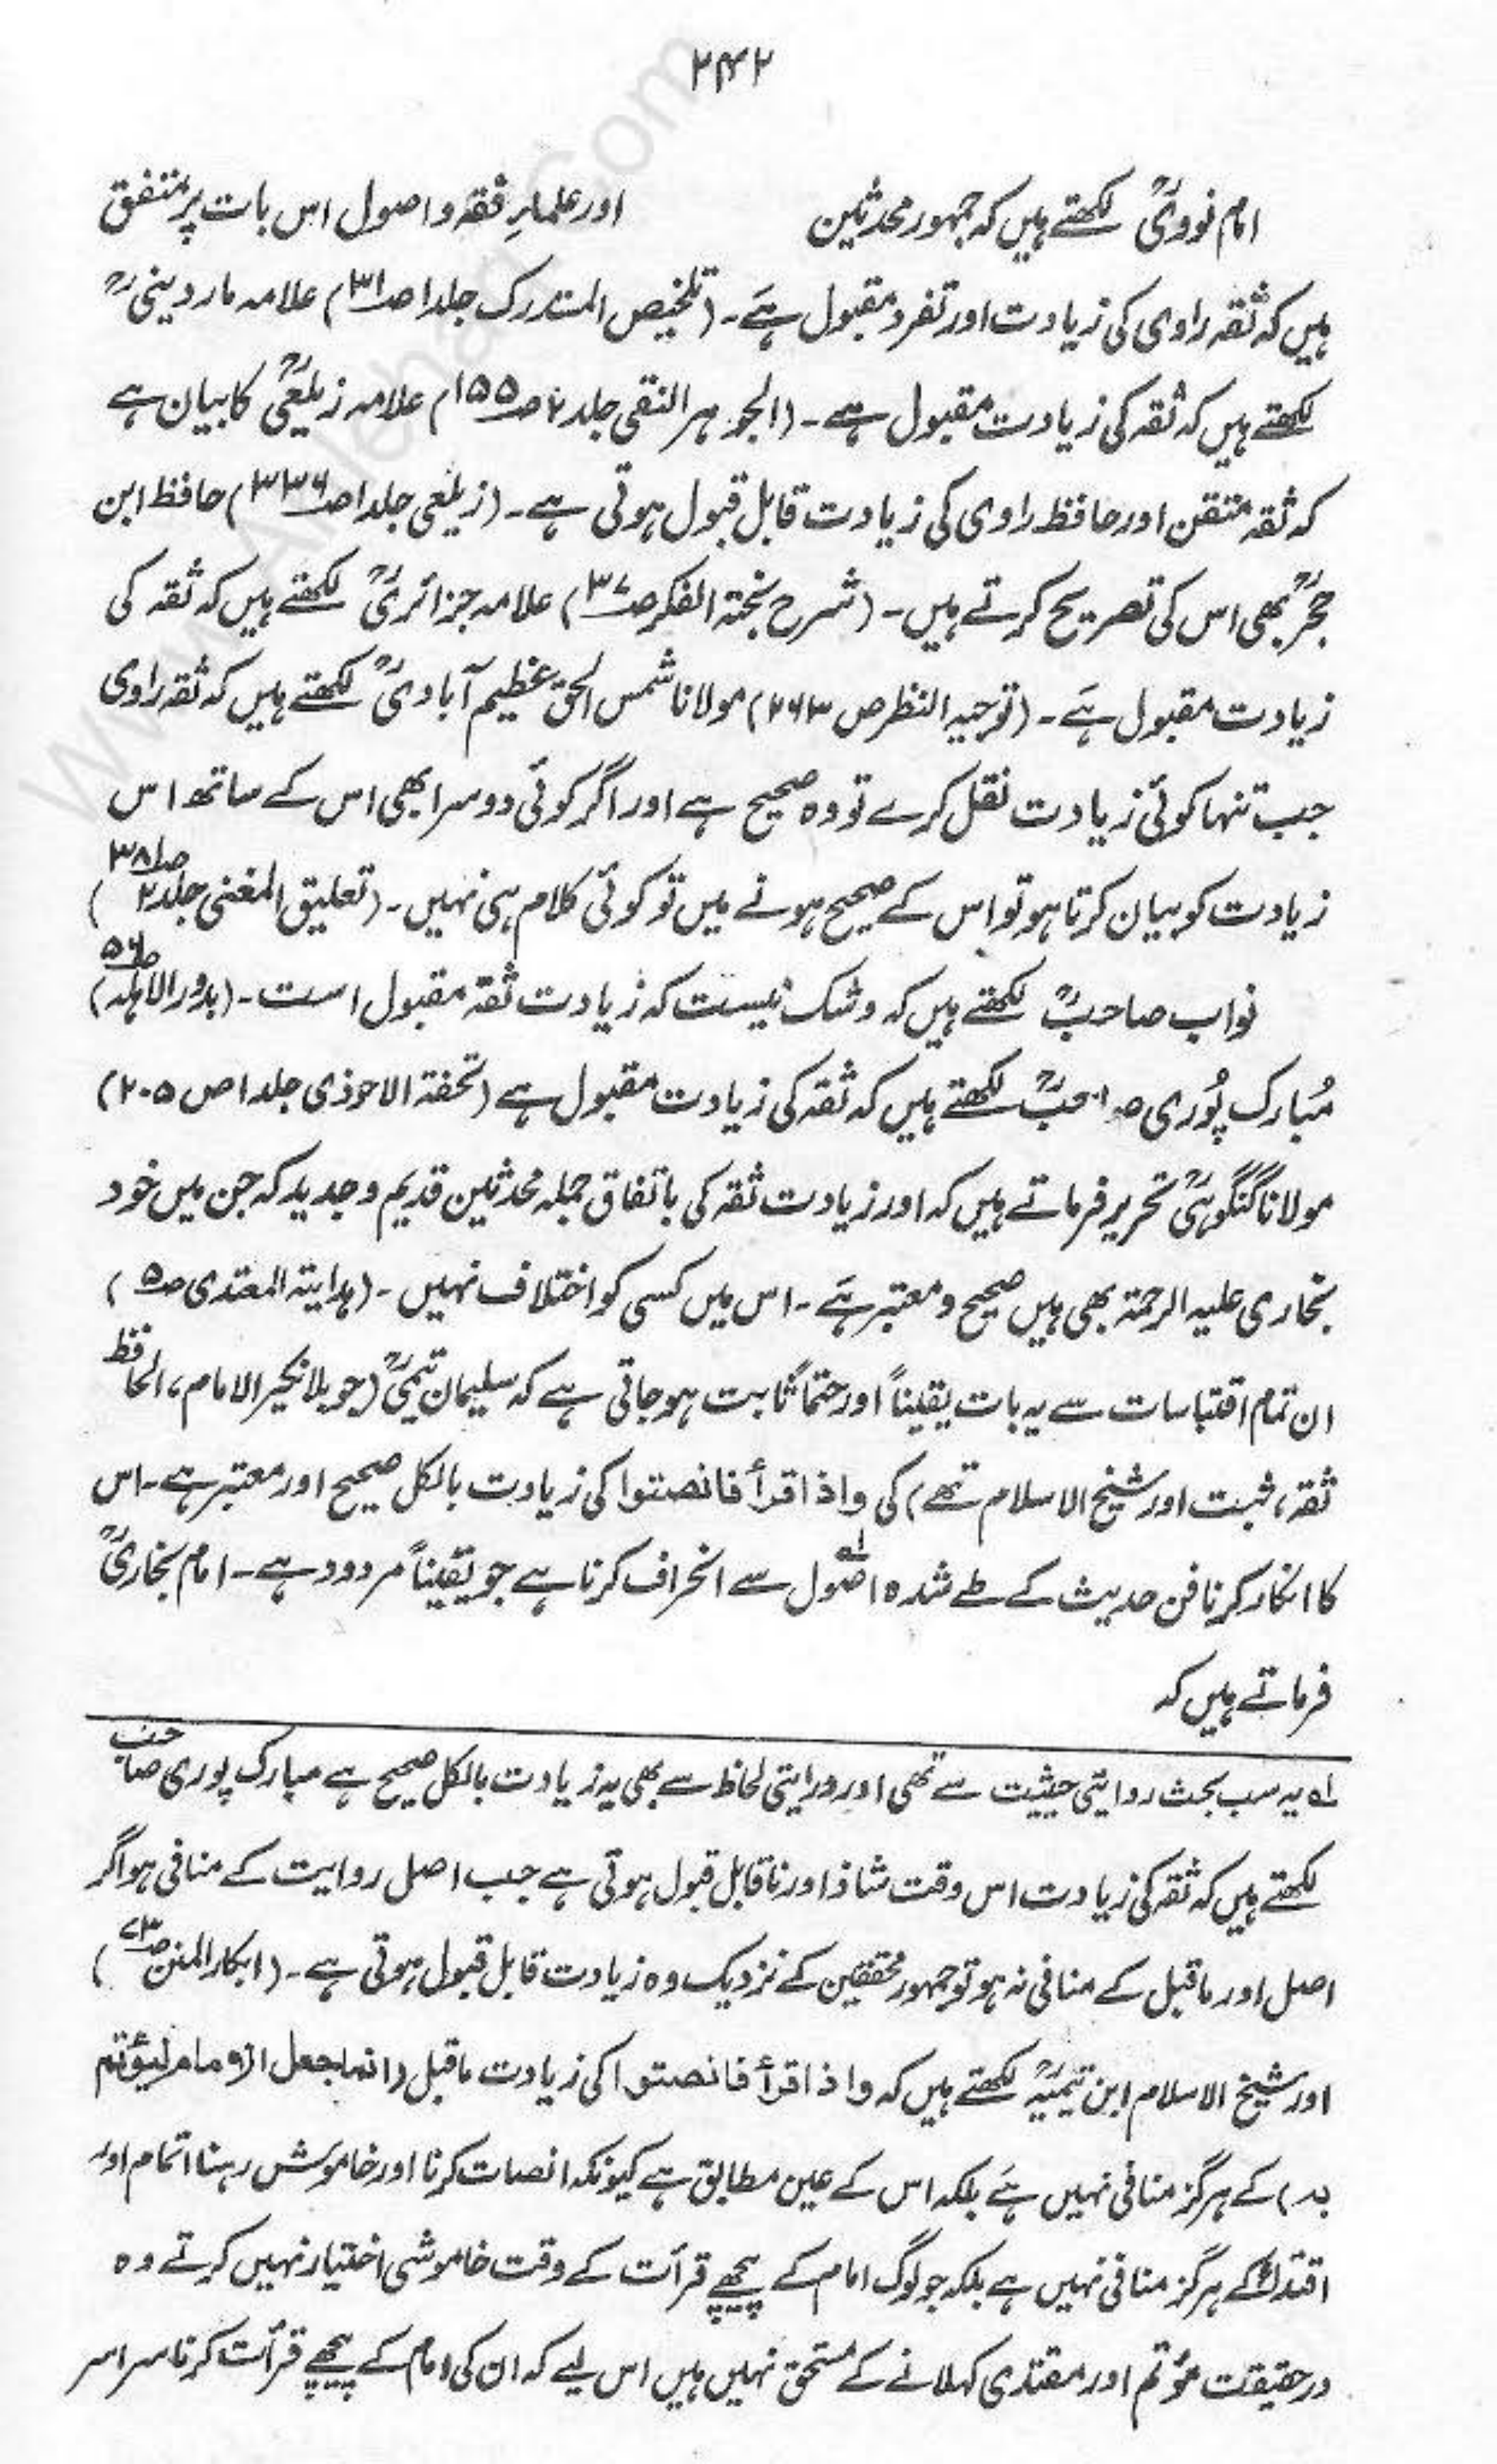 ۲۴۲
امام نوویؒ لکھتے ہیں کہ جمہور محدثین اور علمارِ فقہ و اصول اس بات پر متفق
ہیں کہ ثقہ راوی کی زیادت اور تفرد مقبول ہے۔ (تلخیص المستدرک جلد۱ ص۳۱) علامہ ماردینیؒ
لکھتے ہیں کہ ثقہ کی زیادت مقبول ہے۔ (الجوہر النقی جلد۲ ص۱۵۵) علامہ زیلعیؒ کا بیان ہے
کہ ثقہ متقن اور حافظ راوی کی زیادت قابل قبول ہوتی ہے۔ (زیلعی جلد۱ ص۳۳۶) حافظ ابن
حجرؒ بھی اس کی تصریح کرتے ہیں۔ (شرح نخبۃ الفکر ص۳۷) علامہ جزائریؒ لکھتے ہیں کہ ثقہ کی
زیادت مقبول ہے۔ (توجیہ النظر ص ۲۶۳) مولانا شمس الحق عظیم آبادیؒ لکھتے ہیں کہ ثقہ راوی
جب تنہا کوئی زیادت نقل کرے تو وہ صحیح ہے اور اگر کوئی دوسرا بھی اس کے ساتھ اس
زیادت کو بیان کرتا ہو تو اس کے صحیح ہونے میں تو کوئی کلام ہی نہیں۔ (تعلیق المغنی جلد۲ ص۳۸)
نواب صاحبؒ لکھتے ہیں کہ و شک نیست کہ زیادت ثقہ مقبول است۔ (بدور الاہلہ ص۵۶)
مُبارک پُوری صاحبؒ لکھتے ہیں کہ ثقہ کی زیادت مقبول ہے (تحفۃ الاحوذی جلد۱ ص ۲۰۵)
مولانا گنگوہیؒ تحریر فرماتے ہیں کہ اور زیادت ثقہ کی باتفاق جملہ محدثین قدیم و جدید کہ جن میں خود
بخاری علیہ الرحمۃ بھی ہیں صحیح و معتبر ہے۔ اس میں کسی کو اختلاف نہیں۔ (ہدایۃ المعتدی ص۵)
ان تمام اقتباسات سے یہ بات یقیناً اور حتماً ثابت ہو جاتی ہے کہ سلیمان تیمیؒ (جو بلا نکیر الامام، الحافظ
ثقہ، ثبت اور شیخ الاسلام تھے) کی واذا قرأ فانصتوا کی زیادت بالکل صحیح اور معتبر ہے۔ اس
کا انکار کرنا فن حدیث کے طے شدہ اصُول لہ سے انحراف کرنا ہے جو یقیناً مردود ہے۔ امام بخاریؒ
فرماتے ہیں کہ
لہ یہ سب بحث روایتی حیثیت سے تھی اور درایتی لحاظ سے بھی یہ زیادت بالکل صحیح ہے مبارک پوری صاحب
لکھتے ہیں کہ ثقہ کی زیادت اس وقت شاذ اور ناقابل قبول ہوتی ہے جب اصل روایت کے منافی ہو اگر
اصل اور ماقبل کے منافی نہ ہو تو جمہور محققین کے نزدیک وہ زیادت قابل قبول ہوتی ہے۔ (ابکار المنن ص۷۳)
اور شیخ الاسلام ابن تیمیہؒ لکھتے ہیں کہ واذا قرأ فانصتوا کی زیادت ماقبل (انما جعل الامام لیؤتم
بہ) کے ہرگز منافی نہیں ہے بلکہ اس کے عین مطابق ہے کیونکہ انصات کرنا اور خاموش رہنا ائتمام اور
اقتداء کے ہرگز منافی نہیں ہے بلکہ جو لوگ امام کے پیچھے قرأت کے وقت خاموشی اختیار نہیں کرتے وہ
درحقیقت مؤتم اور مقتدی کہلانے کے مستحق نہیں ہیں اس لیے کہ ان کی امام کے پیچھے قرأت کرنا سراسر